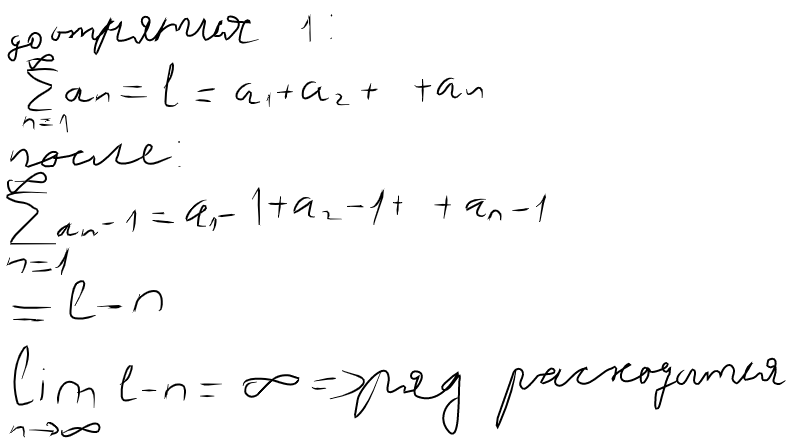 до отнятия 1:
∞
∑ aₙ = l = a₁ + a₂ + + aₙ
n=1
после:
∞
∑ aₙ - 1 = a₁ - 1 + a₂ - 1 + + aₙ - 1
n=1
= l - n
lim l - n = ∞ => ряд расходится
n→∞